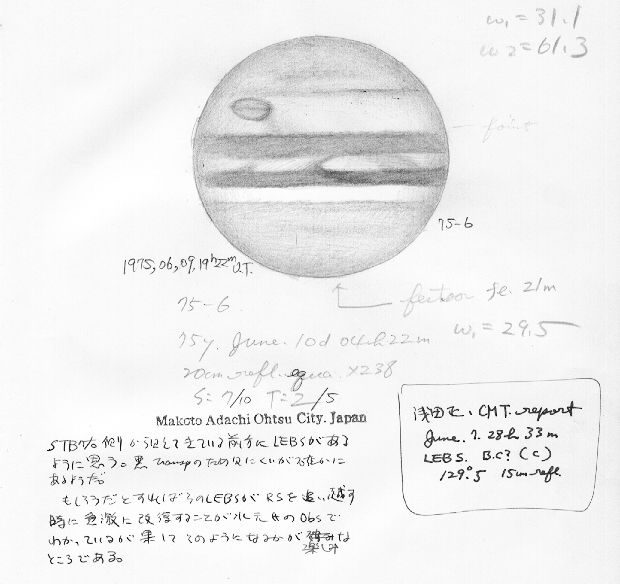 ω₁ = 31.1
ω2 = 61.3
faint
75-6
1975,06,09,19ʰ22ᵐ UT.
75-6
feitoor fe. 21m
75y. June. 10d 04h22m
ω₁ = 29.5
20cm refl. equa. ×238
S= 7/10 T=2/5
Makoto Adachi Ohtsu City. Japan
浅田正. CMT. report
June. 7. 28h 33m
LEBS. B.C? (C)
129°.5 15cm refl.
STBが 起きてきている前方にLEBSがある
ように思う。悪 transpのため見にくいが確かに
あるようだ。
もしそうだとすればそのLEBSがRSを追い越す
時に急激に することが のObsで
わかっているが果してそのようになるかが楽しみな
ところである。